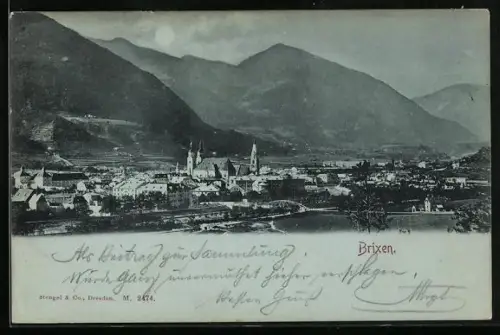 Brixen.
Als Beitrag zur Sammlung!
Würde ganz unvermuthet hieher verschlagen.
Besten Gruß
Stengel & Co., Dresden. M. 2474.